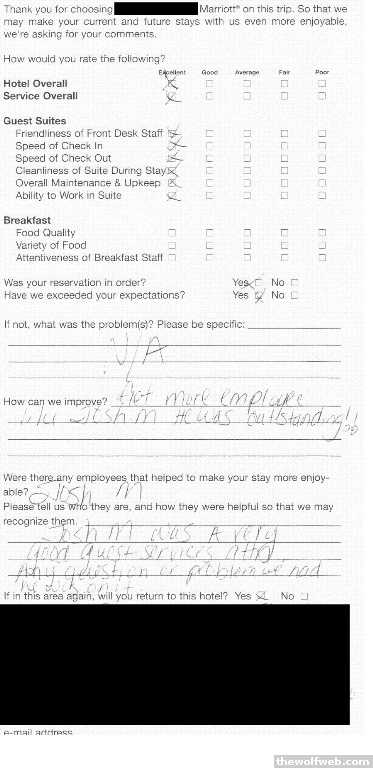 Thank you for choosing Marriott® on this trip. So that we
may make your current and future stays with us even more enjoyable,
we're asking for your comments.
How would you rate the following?
Excellent Good Average Fair Poor
Hotel Overall
Service Overall
Guest Suites
Friendliness of Front Desk Staff
Speed of Check In
Speed of Check Out
Cleanliness of Suite During Stay
Overall Maintenance & Upkeep
Ability to Work in Suite
Breakfast
Food Quality
Variety of Food
Attentiveness of Breakfast Staff
Was your reservation in order? Yes No
Have we exceeded your expectations? Yes No
If not, what was the problem(s)? Please be specific:
N/A
How can we improve? Get more employee
like Josh M He was outstanding!!
Were there any employees that helped to make your stay more enjoy-
able? Josh M
Please tell us who they are, and how they were helpful so that we may
recognize them.
Josh M was A very
Good Guest services
Any question or problem we had
he was on it
If in this area again, will you return to this hotel? Yes No
e-mail address
thewolfweb.com